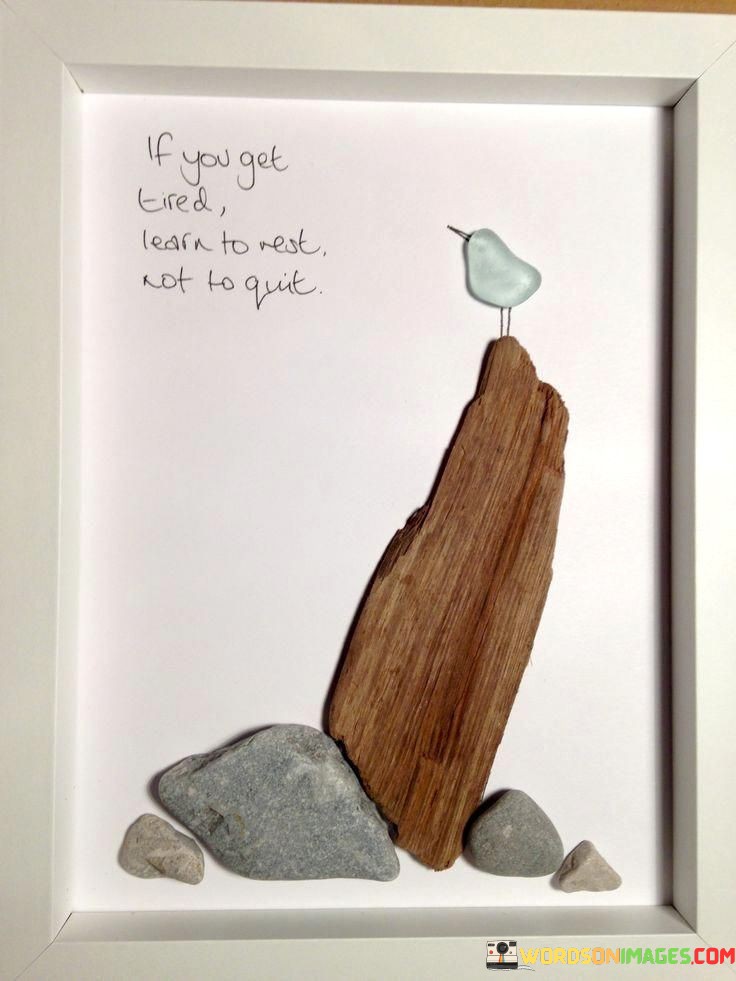 If you get
tired,
learn to rest,
not to quit.
WORDSONIMAGES.COM